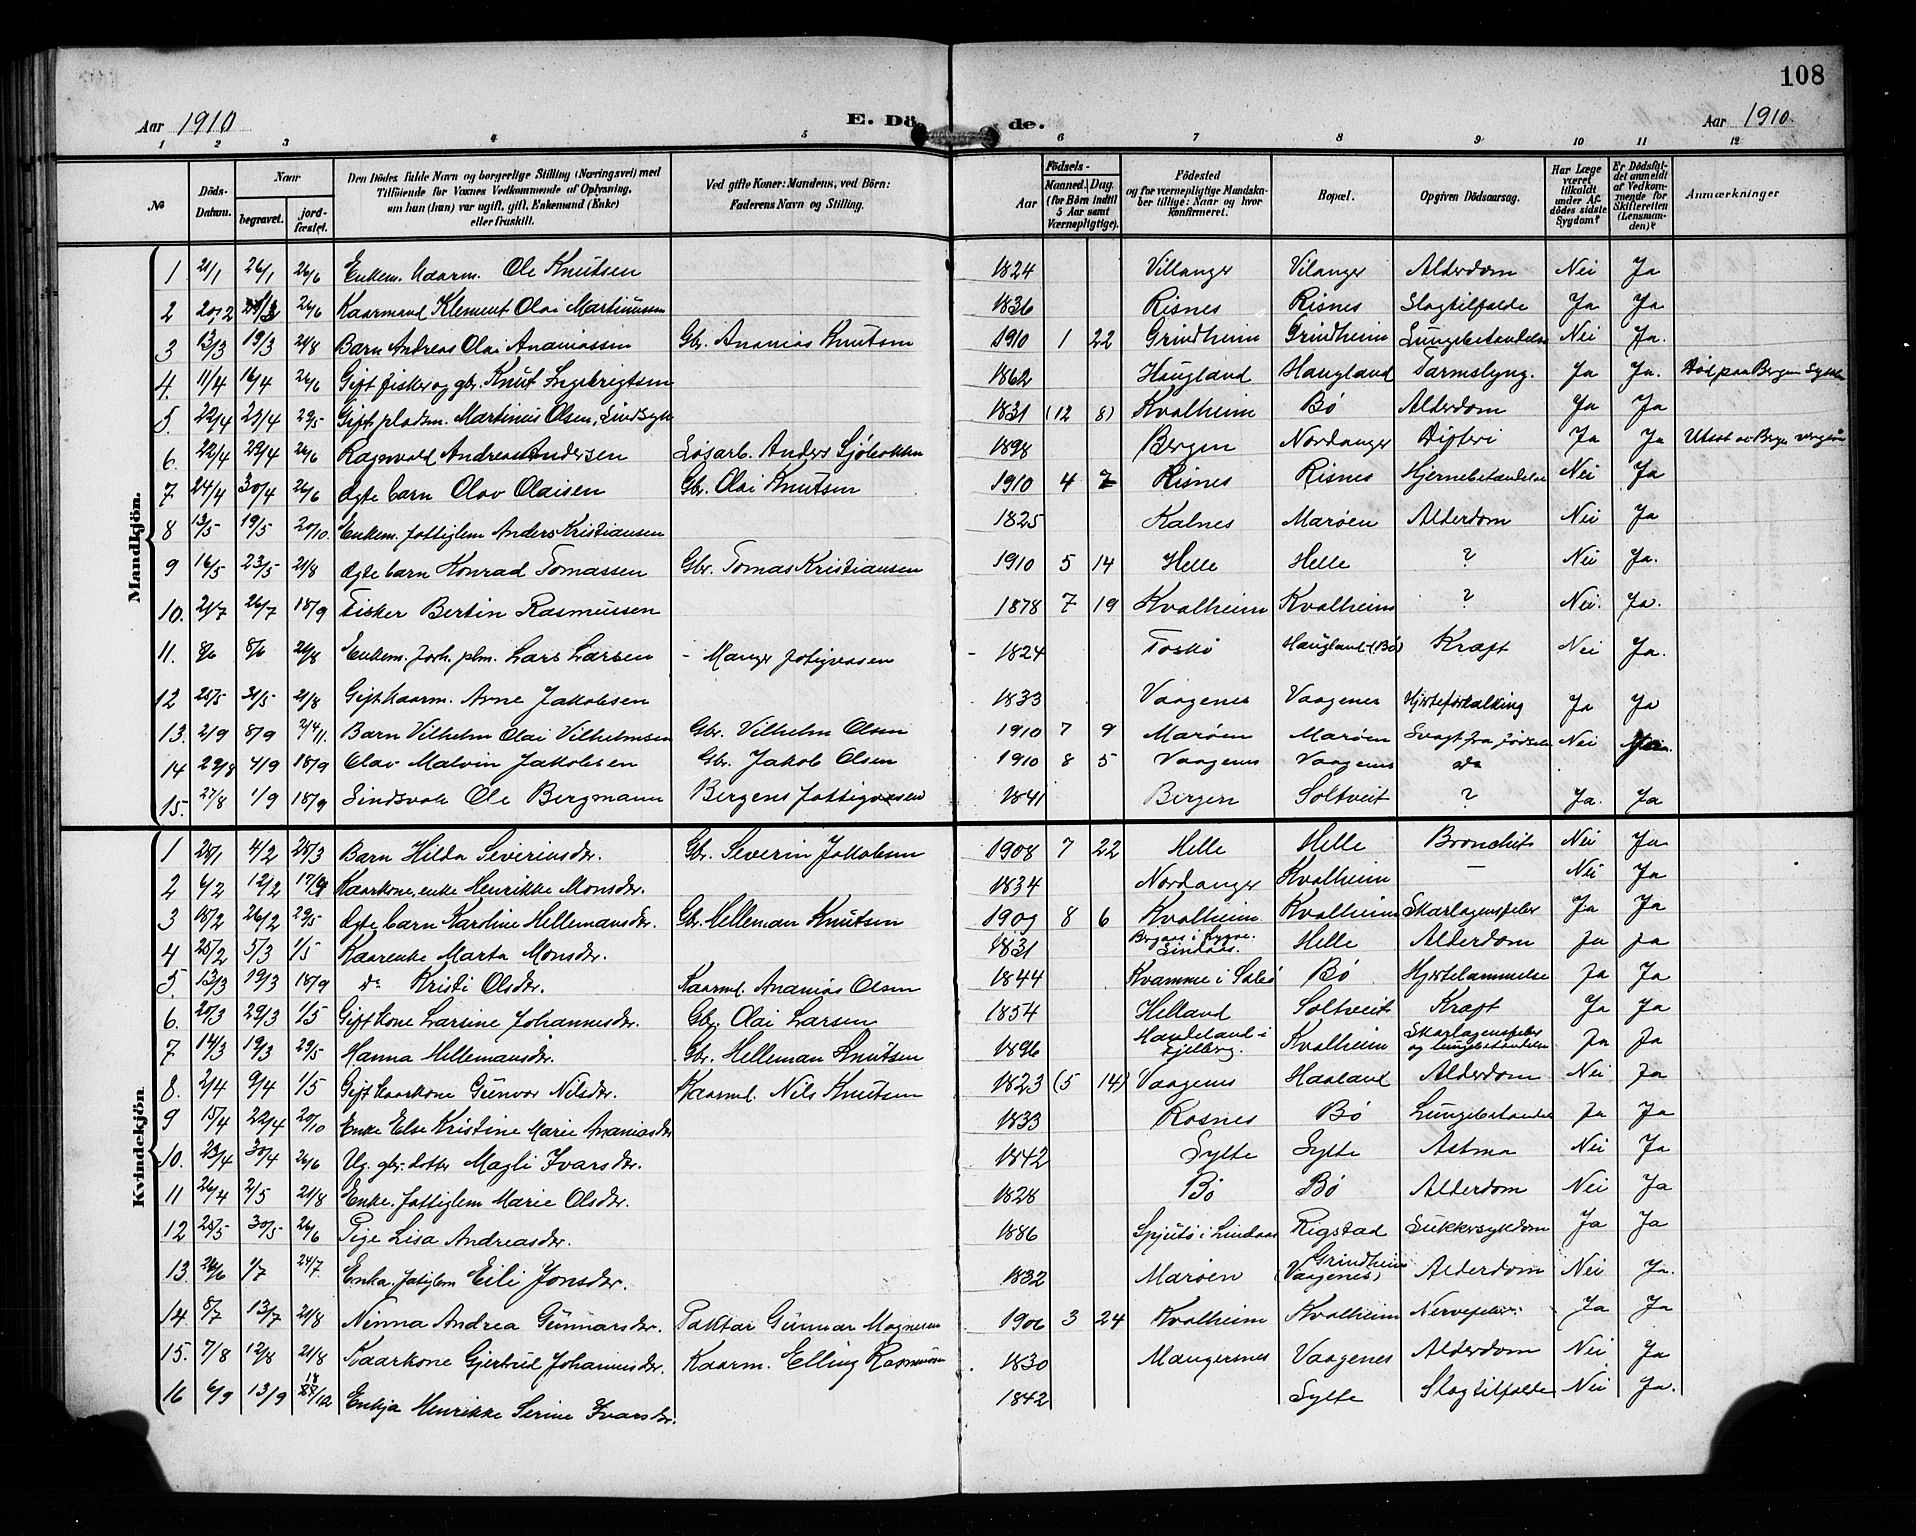 108
Aar 1910
E. Dö de.
Aar 1910
1 2 3 4 5 6 7 8 9 10 11 12
№
Döds-Datum.
Naar
begravet.
jord-fæstet.
Den Dödes fulde Navn og borgerlige Stilling (Næringsvei) med Tilföiende for Voxnes Vedkommende af Oplysning, om han (hun) var ugift, gift, Enkemand (Enke) eller fraskilt.
Ved gifte Koner: Mandens, ved Börn: Faderens Navn og Stilling.
Födsels-
Aar
Maaned. Dag.
(for Börn indtil 5 Aar samt Værnepligtige).
Födested og for værnepligtige Mandska-ber tillige: Naar og hvor konfirmeret.
Bopæl.
Opgiven Dödsaarsag.
Har Læge været tilkaldt under Af-dödes sidste Sygdom?
Er Dödsfal-det anmeldt af Vedkom-mende for Skifteretten (Lensman-den)?
Anmærkninger
Mandkjön.
1 21/1 26/1 26/6 Enkem. kaarm. Ole Knutsen 1824 Villanger Vilanger Alderdom Nei Ja
2 20/2 26/6 Kaarmand Klement Olai Martinussen 1836 Risnes Risnes Slagtilfælde Ja Ja
3 13/3 19/3 21/8 Barn Andreas Olai Ananiassen Gbr. Ananias Knutsen 1910 1 22 Grindheim Grindheim Lungebetændelse Nei Ja.
4. 11/4 16/4 26/6 Gift fisker og gbr. Knut Ingebrigtsen 1862 Haugland Haugland Tarmslyng. Ja Ja. Död paa Bergen Sykeh
5. 22/4 29/4 29/5 Gift pladsm. Martinius Olsen, Sindssyk 1831 (12 8) Kvalheim Bö Alderdom Ja Ja
6. 22/4 29/4 26/6 Ragnvald Andreas Andersen Lösarb. Anders Sjöbakken 1898 Bergen Nordanger Difteri Ja Ja
7 24/4 30/4 26/6 Ægte barn Olav Olaisen Gbr. Olai Knutsen 1910 4 7 Risnes Risnes Hjernebetændelse Nei Ja
8 13/5 19/5 20/10. Enkem. fattiglem Anders Kristiansen 1825 Kalnes Maröen Alderdom Nei Ja
9 16/5 23/5 21/8 Ægte barn Konrad Tomassen Gbr. Tomas Kristiansen 1910 5 14 Helle Helle ? Nei Ja.
10. 21/7 26/7 18/9 Fisker Bertin Rasmussen 1878 7 19 Kvalheim Kvalheim ? Nei. Ja.
11. 8/6 21/8 Enkem. forh. plm. Lars Larsen - Manger fatigvæsen 1824 Toskö Haugland (Bö) Kræft Nei Ja.
12 25/5 31/5 21/8 Gift kaarm. Arne Jakobsen 1833 Vaagenes Vaagenes Hjerteforkalkning Ja Ja
13. 2/9 8/9 2/4 11. Barn Vilhelm Olai Vilhelmsen Gbr. Vilhelm Olsen 1910 7 9 Maröen Maröen Svagt fra födselen Nei
14 29/8 4/9 18/9 Olav Malvin Jakobsen Gbr. Jakob Olsen 1910 8 5 Vaagenes Vaagenes do
15. 27/8 1/9 18/9 Sindsvak Ole Bergmann Bergens fattigvæsen 1841 Bergen Soltveit ? Ja. Ja
Kvindekjön
1 28/1 4/2 28/3 Barn Hilda Severinsdtr. Gbr. Severin Jakobsen 1908 7 22 Helle Helle Bronchit Nei Ja
2 6/2 12/2 Kaarkone, enke Henrikke Monsdtr. 1834 Nordanger Kvalheim — Nei Ja
3 18/2 26/2 29/5 Ægte barn Karoline Hellemansdtr. Gbr. Helleman Knutsen 1909 8 6 Kvalheim Kvalheim Skarlagensfeber Ja Ja
4 25/2 5/3 1/5 Kaarenke Marta Monsdtr. 1831 Lindaas. Helle Alderdom Ja Ja
5. 13/3 19/3 18/9 do Kristi Olsdtr. Kaarml. Ananias Olsen 1844 Kvamme i Sælbö Bö Hjertelammelse Ja Ja
6. 20/3 29/3 1/5 Gift kone Larsine Johannesdtr. Gbr. Olai Larsen 1854 Helland Soltveit Kræft Ja Ja
7 14/3 19/3 29/5 Hanna Hellemansdtr. Gbr. Helleman Knutsen 1896 Handeland i Fjelberg. Kvalheim Skarlagensfeber og lungebetændelse Ja Ja
8. 2/4 9/4 1/5 Gift kaarkone Gunvor Nilsdtr. Kaarml. Nils Knutsen 1823 (5 14) Vaagenes Haaland Alderdom Nei Ja
9 15/4 22/4 20/10 Enke Else Kristine Marie Ananiasdtr 1833 Rosnes Bö Lungebetændelse Ja Ja
10. 23/4 30/4 26/6 Ug. gbr. datter Magli Ivarsdtr. 1842 Sylte Sylte Astma Nei Ja
11 26/4 2/5 21/8 Enke. fattiglem Marie Olsdtr. 1828 Bö Bö Alderdom Nei Ja
12 25/5 30/5 26/6 Pige Lisa Andreasdtr. 1886 Spjutö i Lindaas Rigstad Sukkersykdom Ja Ja
13. 26/6 1/7 24/7 Enke. fatiglem Eili Jonsdtr. 1832 Maröen Grindheim (Vaagenes) Alderdom Nei Ja.
14 8/7 13/7 21/8 Ninna Andrea Gunnarsdtr. Paktar Gunnar Magnesen 1906 3 24 Kvalheim Kvalheim Nervefeber. Ja Ja
15. 7/8 12/8 21/8 Kaarkone Gjertrud Johannesdtr. Kaarm. Elling Rasmussen 1830 Mangersnes Vaagenes Alderdom Nei Ja
16 6/9 13/9 Enkja Henrikke Serine Ivarsdtr. 1842 Sylte Slagtilfælde Nei Ja.